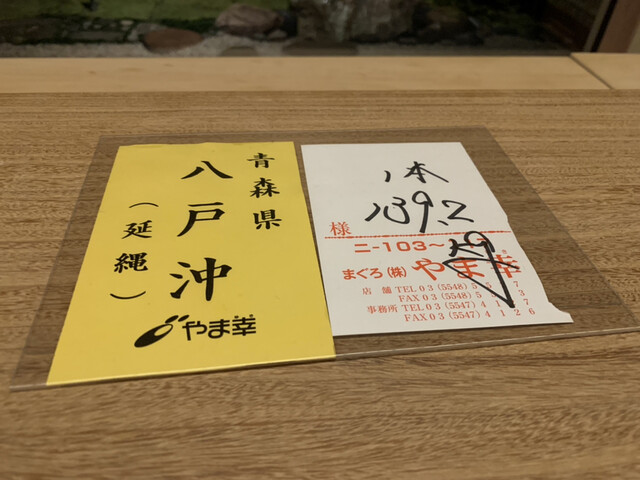 青森県
八戸沖
（延縄）
やま幸
1本
139.2
様
ニ-103〜
まぐろ（株）やま幸
店舗 TEL 03 (5548)
FAX 03 (5548)
事務所 TEL 03 (5547) 4
FAX 03 (5547) 4126